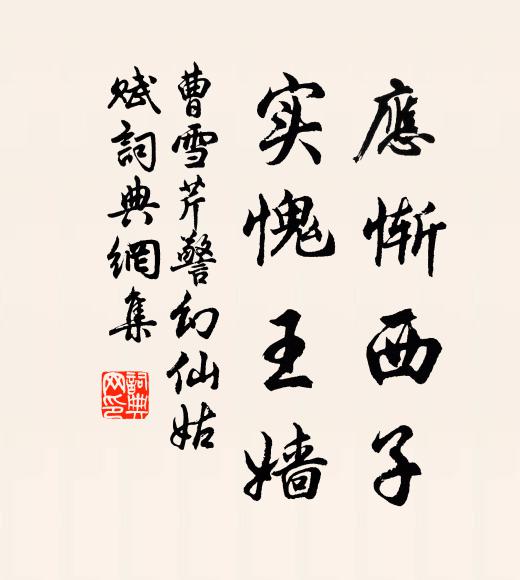 應惭西子
实愧王嫱
曹雪芹警幻仙姑
赋詞典網集
詞典网印